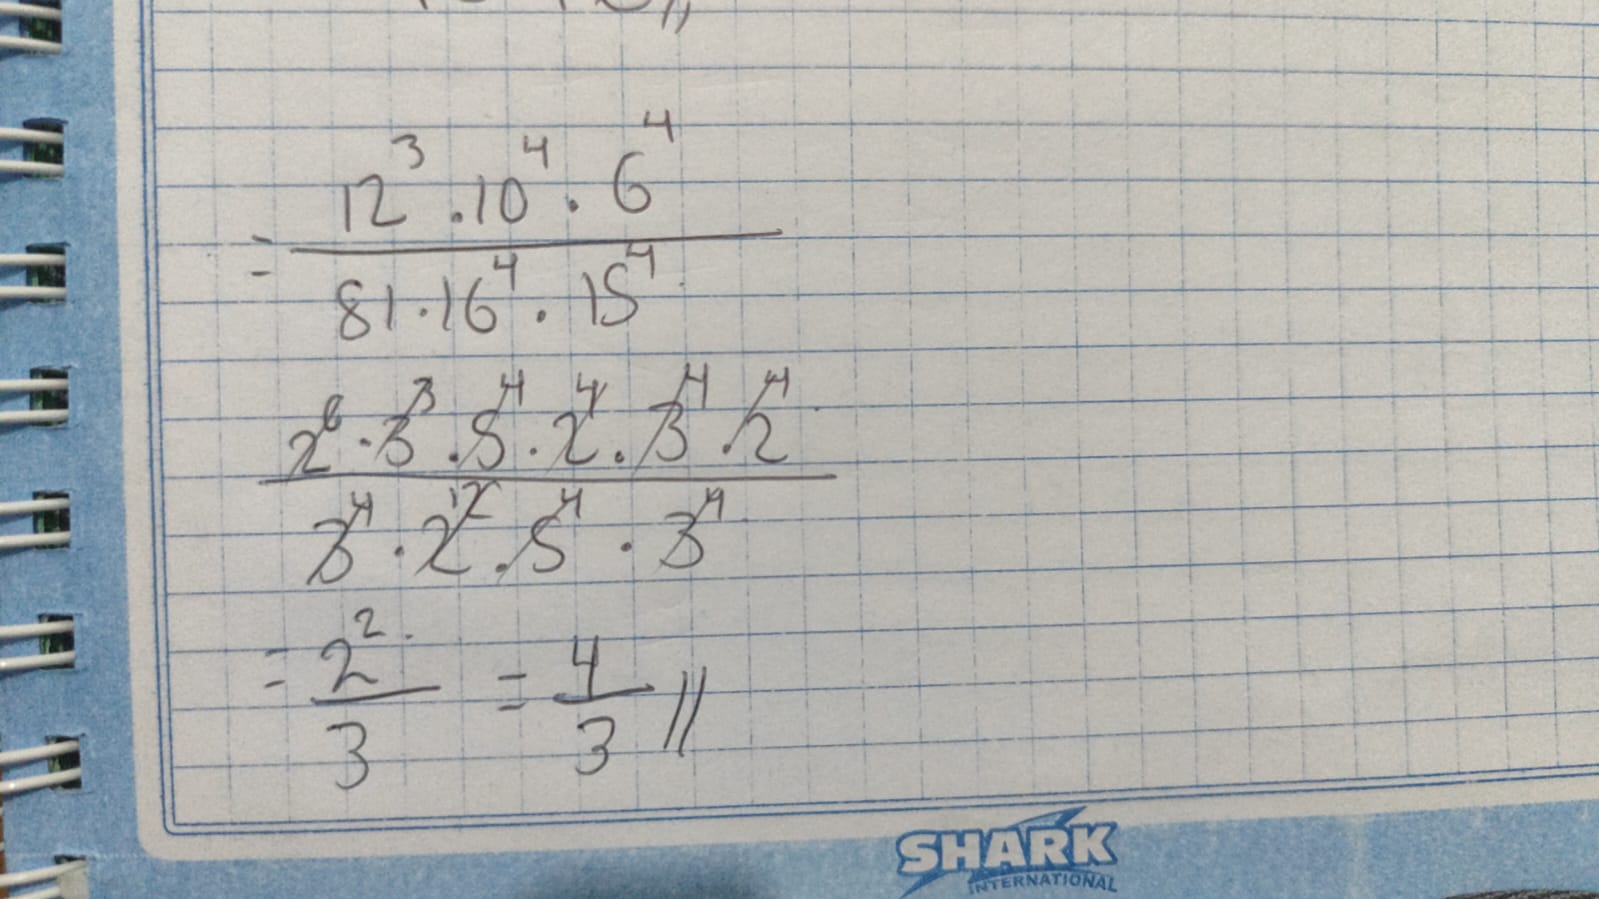 12³ . 10⁴ . 6⁴
=
81 . 16⁴ . 15⁴
2⁶ . 3³ . 5⁴ . 2⁴ . 3⁴ . 2⁴
3⁴ . 2¹² . 5⁴ . 3⁴
= 2² / 3 = 4 / 3 //
SHARK
INTERNATIONAL